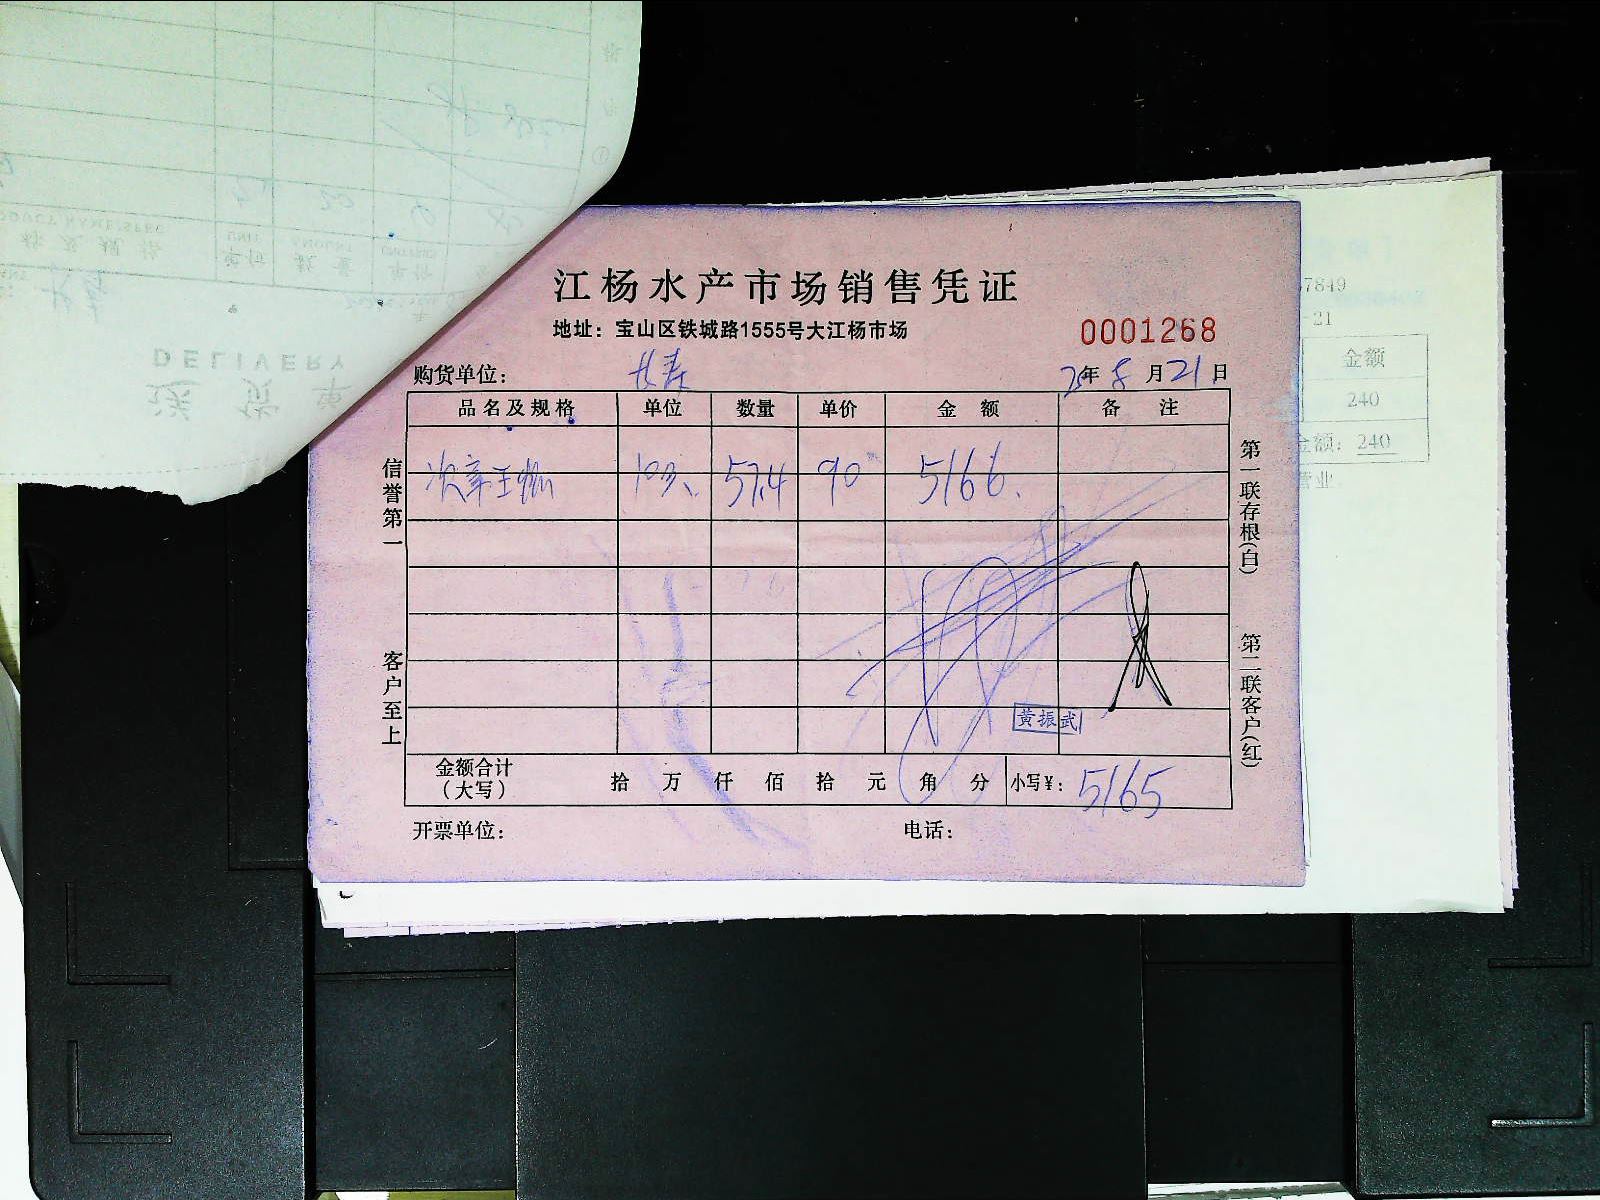 江杨水产市场销售凭证
地址：宝山区铁城路1555号大江杨市场
0001268
购货单位： 长寿
25年8月21日
品名及规格 单位 数量 单价 金额 备注
57.4 90 5166.
黄振武
金额合计（大写） 拾 万 仟 佰 拾 元 角 分 小写¥： 5165
开票单位： 电话：
信誉第一
客户至上
第一联存根(白)
第二联客户(红)
7849
-21
金额
240
金额： 240
营业
DELIVERY
送货单